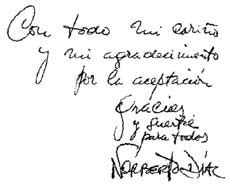 Con todo mi cariño
y mi agradecimiento
por la aceptación
Gracias
y suerte
para todos
Norberto Díaz